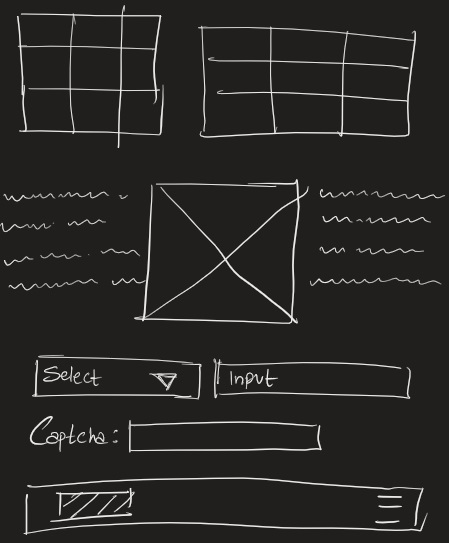 Select
Input
Captcha: